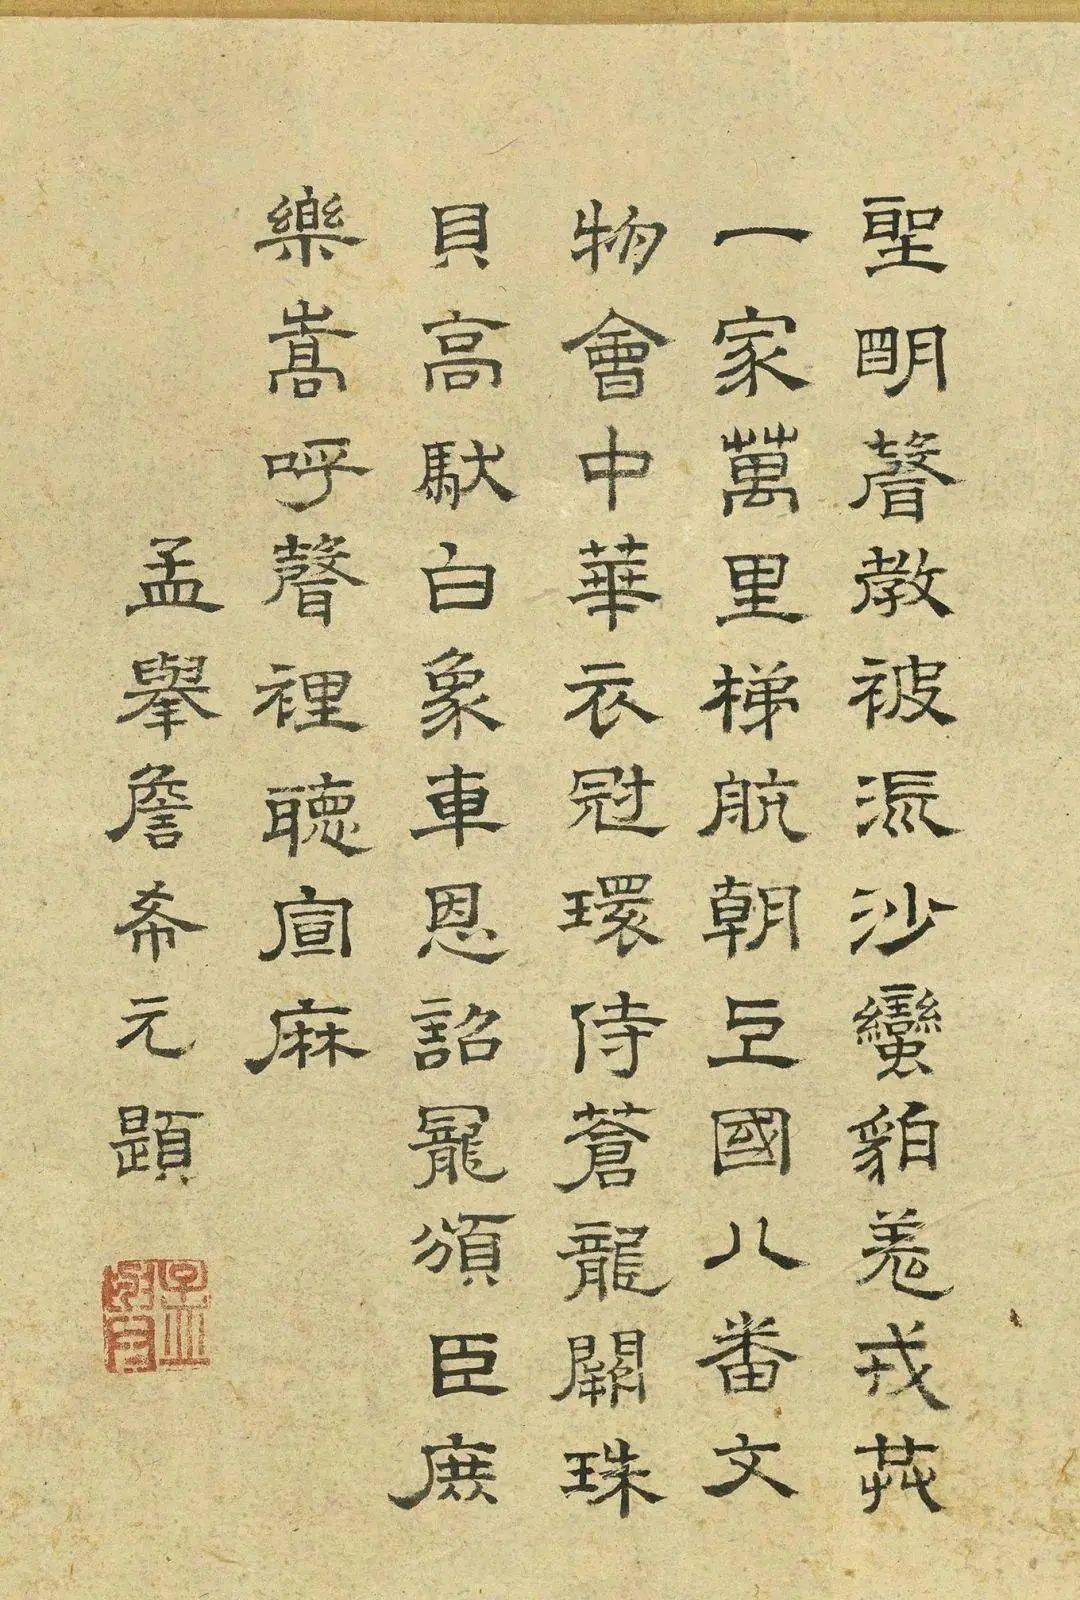 聖眀聲教被流沙蠻貊羌戎共
一家萬里梯航朝上國八番文
物會中華衣冠環侍蒼龍闕珠
貝高馱白象車恩詔寵頒臣庶
樂嵩呼聲裡聽宣麻
孟舉詹希元題